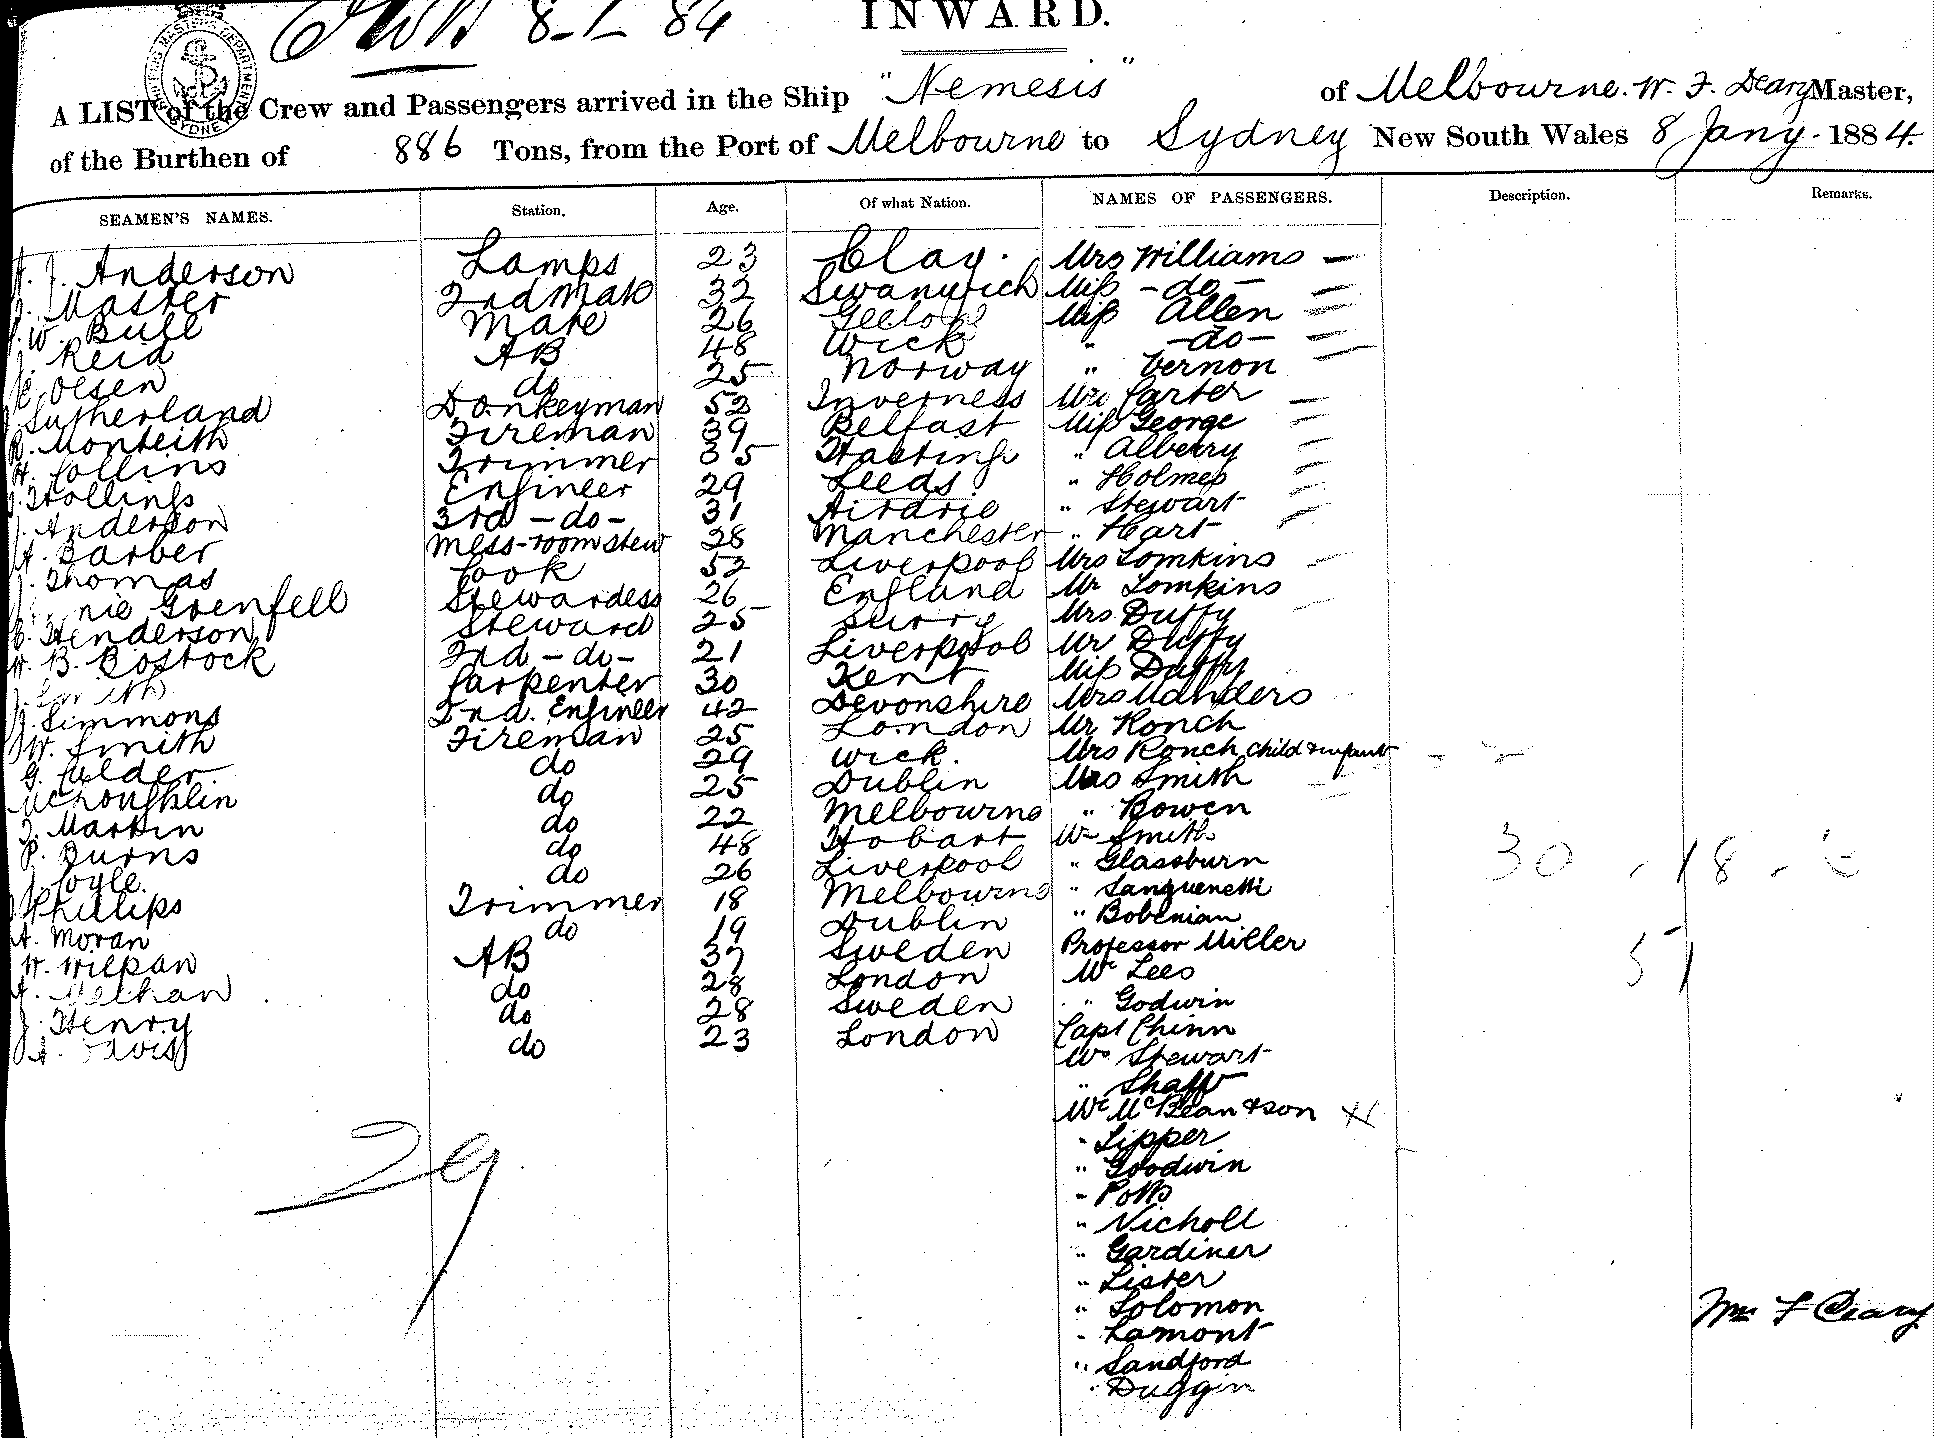 8-1-84
INWARD.
A LIST of the Crew and Passengers arrived in the Ship "Nemesis" of Melbourne. W. F. Deary Master,
of the Burthen of 886 Tons, from the Port of Melbourne to Sydney New South Wales 8 Jany. 1884.
SEAMEN'S NAMES. Station. Age. Of what Nation. NAMES OF PASSENGERS. Description. Remarks.
J. Anderson Lamps 23 Clay. Mrs Williams —
Master 2nd Mate 32 Swanwich Miss -do-
W. Bull Mate 26 Miss Allen
J. Reid AB 48 Wick " -do-
Olsen do 25 Norway " Vernon
Sutherland Donkeyman 52 Inverness Mrs Carter
R. Monteith Fireman 39 Belfast Miss George
H. Collins Trimmer 35 Hastings " Alberry
Hollings Engineer 29 Leeds. " Holmes
J. Anderson 3rd -do- 31 Airdrie " Stewart
A. Barber Mess-room stew 28 Manchester " Hart
J. Thomas Cook 52 Liverpool Mrs Tomkins
Grenfell Stewardess 26 England Mr Tomkins
Henderson Steward 25 Surry Mrs Duffy
W. B. Bostock 2nd -do- 21 Liverpool Mr Duffy
Carpenter 30 Kent Miss Duffy
J. Simmons 2nd. Engineer 42 Devonshire Mrs Manders
W. Smith Fireman 25 London Mr Ronch
G. Calder. do 29 Wick. Mrs Ronch, child & infant
McLoughlin do 25 Dublin Mrs Smith
J. Martin do 22 Melbourne " Bowen
P. Burns do 48 Hobart Mr Smith
J. Coyle. do 26 Liverpool " Glassburn 30 - 18 -
Phillips Trimmer 18 Melbourne " Sanguenetti
A. Moran do 19 Dublin " Bobenian
W. Wilpan AB 37 Sweden Professor Miller 51
Meehan do 28 London Mr Lees
J. Henry do 28 Sweden " Godwin
A. Davis do 23 London Capt Chinn
Mr Stewart
" Shaff
Mr McBean & son X
" Lipper
" Goodwin
" Potts
" Nicholl
29
" Gardiner
" Lister
" Solomon
" Lamont
Wm F Deary
" Sandford
" Duggin